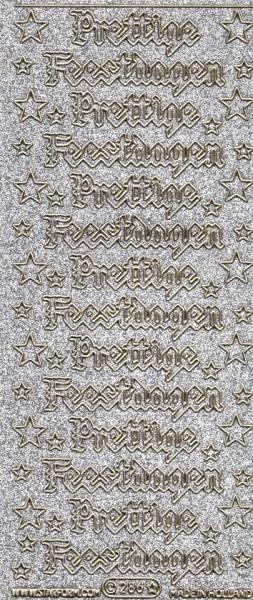 Prettige
Feestdagen
Prettige
Feestdagen
Prettige
Feestdagen
Prettige
Feestdagen
Prettige
Feestdagen
Prettige
Feestdagen
Prettige
Feestdagen
WWW.STARFORM.COM © 286 MADE IN HOLLAND